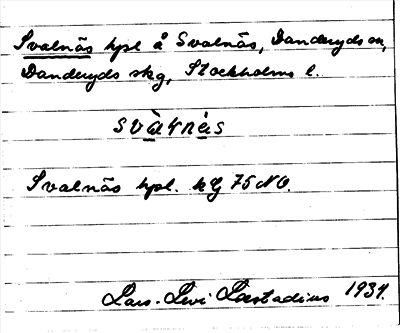 Svalnäs hpl å Svalnäs, Danderyds sn,
Danderyds skg, Stockholms l.
Svalnäs hpl. kg 75 NO.
Lars-Levi Læstadius 1934.